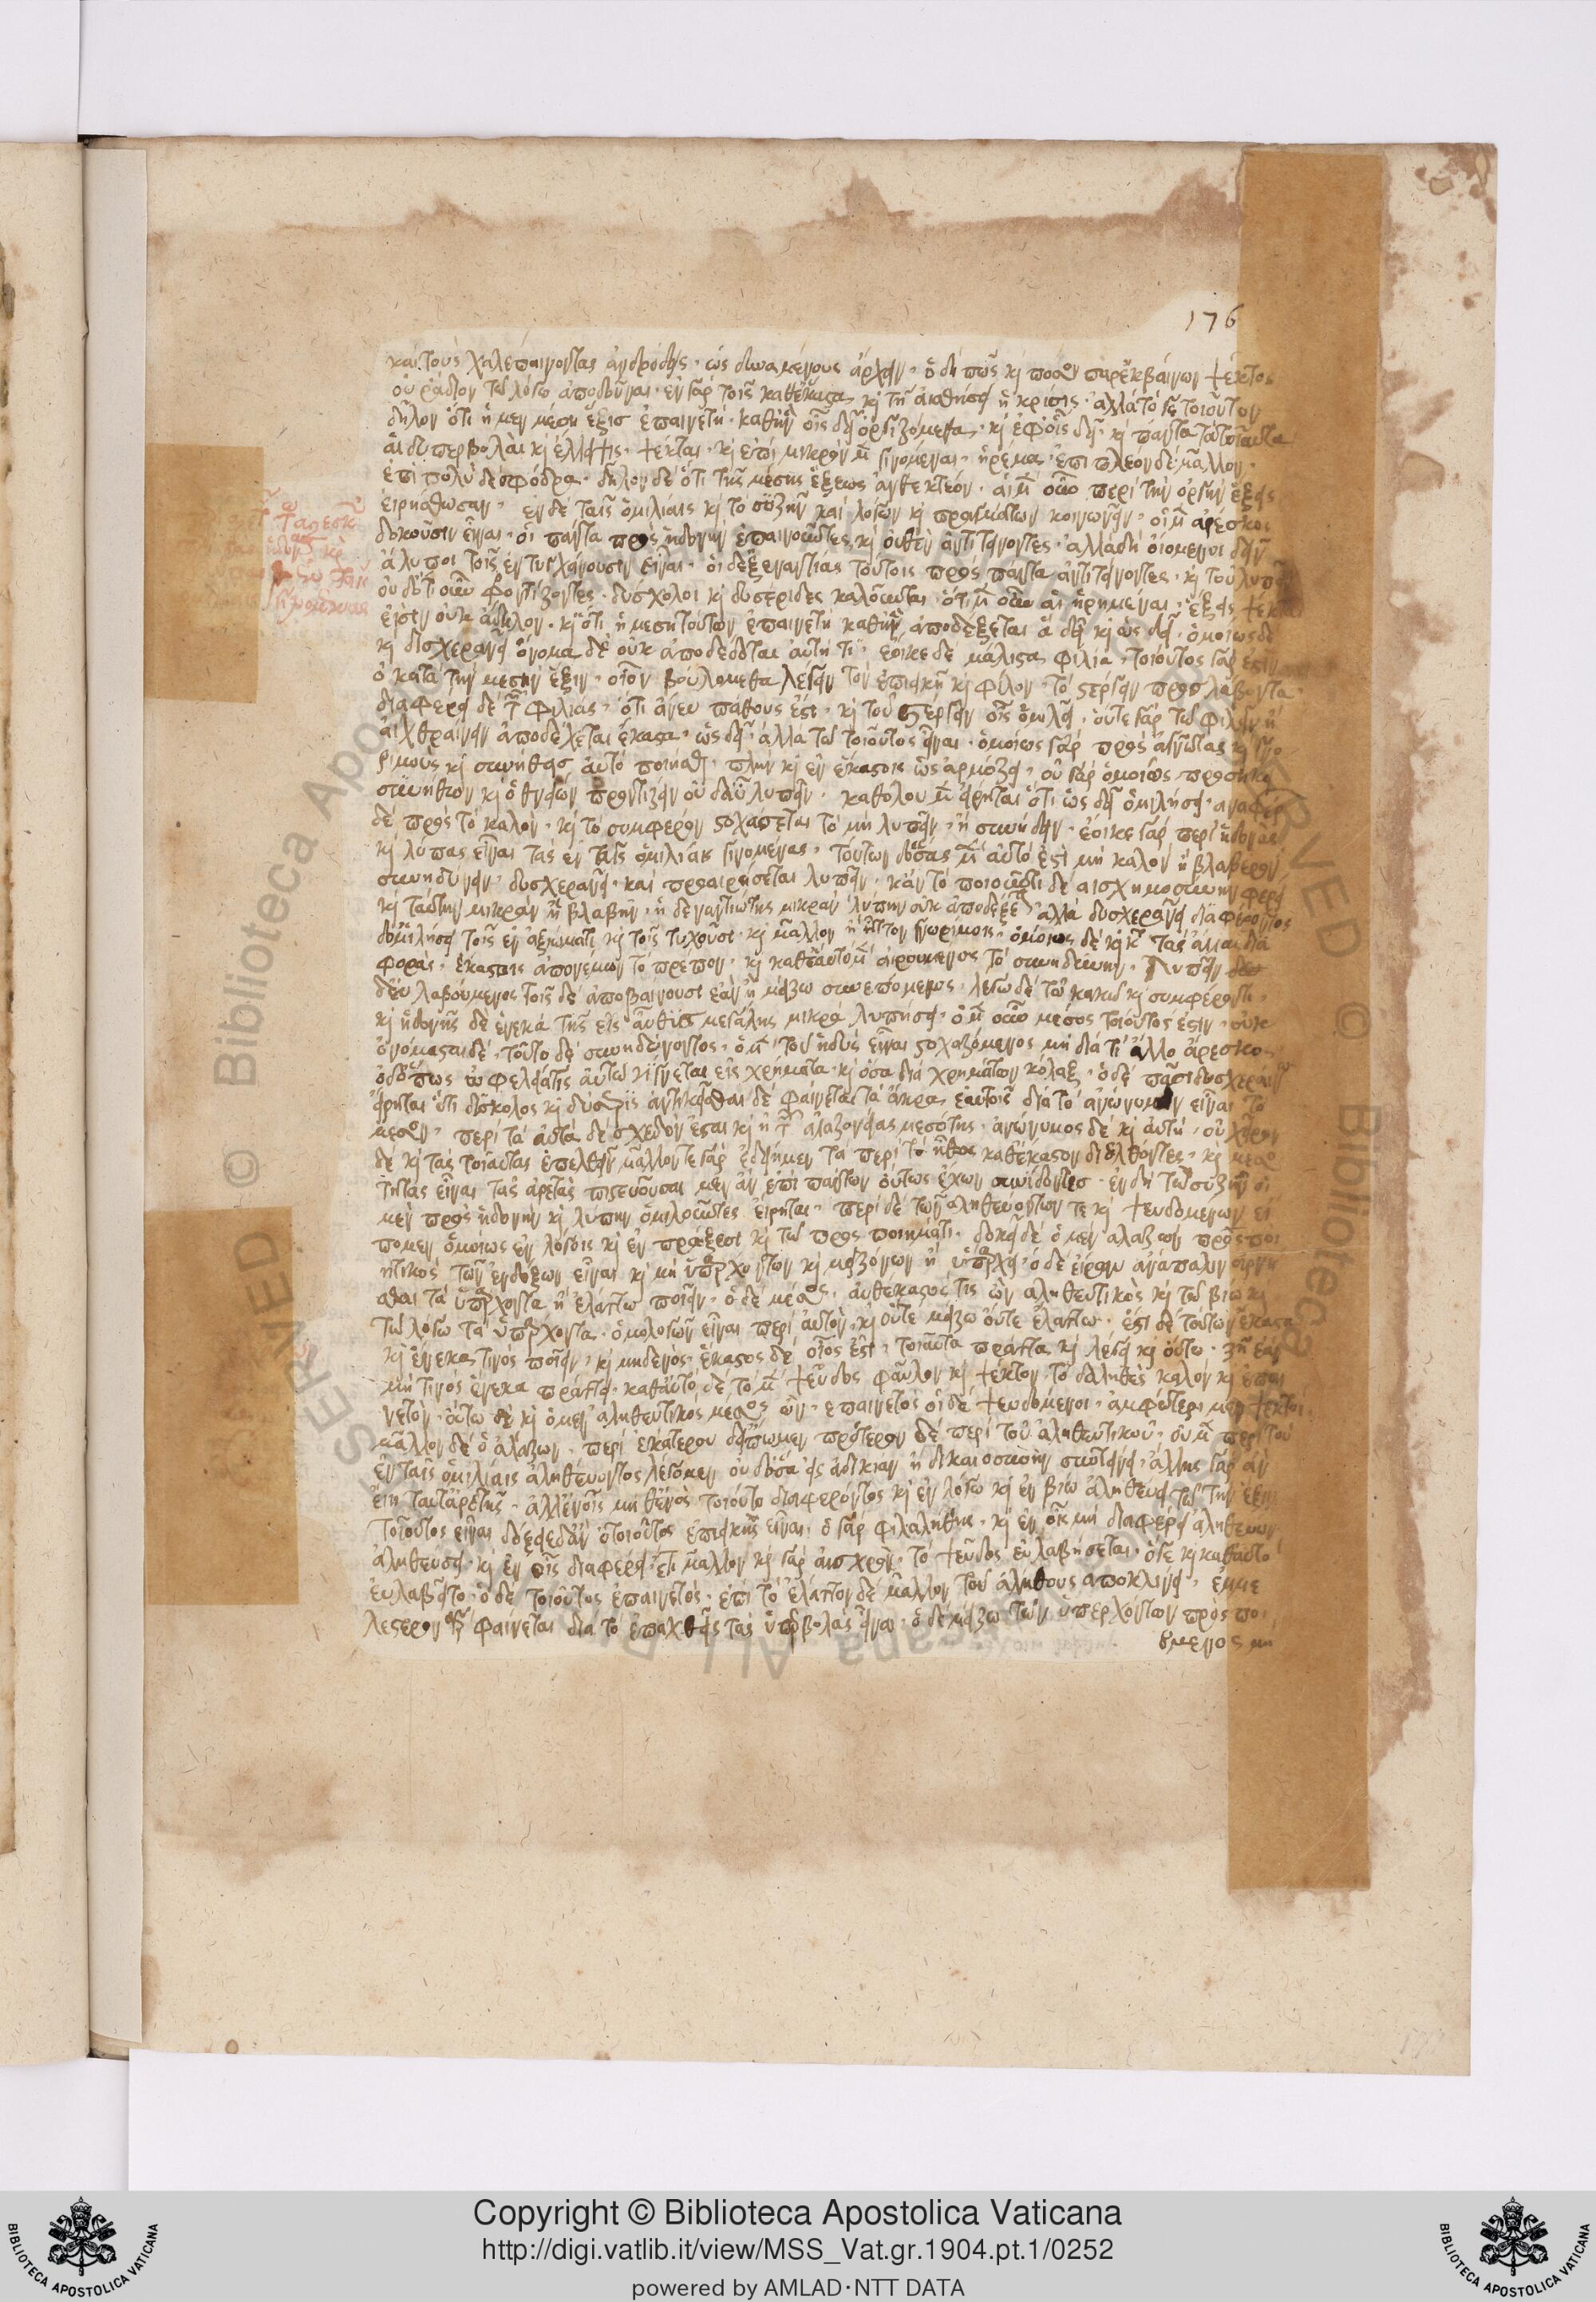 176
καὶ τοὺς χαλεπαίνοντας ἀνδρώδεις· ὡς δυναμένους ἄρχειν· ὁ δὴ πῶς κ πόσον παρεκβαίνων ψεκτὸς
οὐ ράδιον τῶ λόγω ἀποδοῦναι· ἐν γὰρ τοῖς καθέκαστα κ τῆ αἰσθήσει ἡ κρίσις· ἀλλὰ τό γε τοιοῦτον
δῆλον ὅτι ἡ μὲν μέση ἕξις ἐπαινετὴ· καθ' ἣν οἷς δεῖ ὀργιζόμεθα· κ ἐφ' οἷς δεῖ· κ πάντα τὰ τοιαῦτα
αἱ δ' ὑπερβολαὶ κ ἐλλείψεις· ψεκταὶ· κ ἐπὶ μικρὸν μὲν γινόμεναι· ἠρέμα· ἐπὶ πλέον δὲ μᾶλλον·
ἐπὶ πολὺ δὲ σφόδρα· δῆλον δὲ ὅτι τῆς μέσης ἕξεως ἀνθεκτέον· αἱ μὲν οὖν περὶ τὴν ὀργὴν ἕξεις
εἰρήσθωσαν· ἐν δὲ ταῖς ὁμιλίαις κ τὸ συζῆν καὶ λόγων κ πραγμάτων κοινωνεῖν· οἱ μὲν ἄρεσκοι
δοκοῦσιν εἶναι· οἱ πάντα πρὸς ἡδονὴν ἐπαινοῦντες κ οὐθὲν ἀντιτείνοντες· ἀλλὰ δὴ οἰόμενοι δεῖν
ἄλυποι τοῖς ἐντυγχάνουσιν εἶναι· οἱ δ' ἐξεναντίας τούτοις πρὸς πάντα ἀντιτείνοντες· κ τοῦ λυπεῖν
οὐδ' ὁτιοῦν φροντίζοντες· δύσκολοι κ δυσέριδες καλοῦνται· ὅτι μὲν οὖν αἱ εἰρημέναι ἕξεις ψεκταὶ
εἰσὶν οὐκ ἄδηλον· κ ὅτι ἡ μέση τούτων ἐπαινετὴ καθ' ἣν ἀποδέξεται ἃ δεῖ κ ὡς δεῖ· ὁμοίως δὲ
κ δυσχερανεῖ ὄνομα δὲ οὐκ ἀποδέδοται αὐτῆ τι· ἔοικε δὲ μάλιστα φιλία· τοιοῦτος γάρ ἐστιν
ὁ κατὰ τὴν μέσην ἕξιν· οἷον βουλόμεθα λέγειν τὸν ἐπιεικῆ κ φίλον· τὸ στέργειν προσλαβόντα·
διαφέρει δὲ τῆς φιλίας· ὅτι ἄνευ πάθους ἐστὶ· κ τοῦ στέργειν οἷς ὁμιλεῖ· οὔτε γὰρ τῶ φιλεῖν ἢ
ἐχθραίνειν ἀποδέχεται ἕκαστα· ὡς δεῖ· ἀλλὰ τῶ τοιοῦτος εἶναι· ὁμοίως γὰρ πρὸς ἀγνῶτας κ γνω
ρίμους κ συνήθεις αὐτὸ ποιήσει· πλὴν κ ἐν ἑκάστοις ὡς ἁρμόζει· οὐ γὰρ ὁμοίως προσήκει
συνήθων κ ὀθνείων φροντίζειν οὐδ' αὖ λυπεῖν· καθόλου μὲν εἴρηται ὅτι ὡς δεῖ ὁμιλήσει· ἀναφέρ
δὲ πρὸς τὸ καλὸν· κ τὸ συμφέρον στοχάσεται τὸ μὴ λυπεῖν· ἢ συνήδειν· ἔοικε γὰρ περὶ ἡδονὰς
κ λύπας εἶναι τὰς ἐν ταῖς ὁμιλίαις γινομένας· τούτων δ' ὅσας μὲν αὐτό ἐστὶ μὴ καλὸν ἢ βλαβερὸν
συνηδύνειν· δυσχερανεῖ· καὶ προαιρήσεται λυπεῖν· κἂν τὸ ποιοῦντι δὲ ἀσχημοσύνην φέρει
κ ταύτην μικρὰν ἢ βλάβην· ἡ δ' ἐναντιότης μικρὰν λύπην οὐκ ἀποδέξεται ἀλλὰ δυσχερανεῖ διαφερόντως
δ' ὁμιλήσει τοῖς ἐν ἀξιώματι κ τοῖς τυχοῦσι· κ μᾶλλον ἢ ἧττον γνωρίμοις· ὁμοίως δὲ κ κατὰ τὰς ἄλλας δια
φορὰς· ἑκάστοις ἀπονέμων τὸ πρέπον· κ καθ' ἑαυτὸ μὲν αἱρούμενος τὸ συνηδύνειν· λυπεῖν
δ' εὐλαβούμενος τοῖς δὲ ἀποβαίνουσι ἐὰν ἢ μείζω συνεπόμενος· λέγω δὲ τῶ καλῶ κ συμφέροντι·
κ ἡδονῆς δὲ ἕνεκα τῆς εἰς αὖθις μεγάλης μικρὰ λυπήσει· ὁ μὲν οὖν μέσος τοιοῦτός ἐστιν· οὐκ
ὠνόμασται δὲ· τοῦτο δὲ συνηδύνοντος· ὁ μὲν τοῦ ἡδὺς εἶναι στοχαζόμενος μὴ διά τι ἄλλο ἄρεσκος
ὁ δ' ὅπως ὠφέλειά τις αὐτῶ γίγνεται εἰς χρήματα· κ ὅσα διὰ χρημάτων κόλαξ· ὁ δὲ πᾶσι δυσχεραίνων
εἴρηται ὅτι δύσκολος κ δύσερις ἀντικεῖσθαι δὲ φαίνεται τὰ ἄκρα ἑαυτοῖς διὰ τὸ ἀνώνυμον εἶναι τὸ
μέσον· περὶ τὰ αὐτὰ δὲ σχεδόν ἐστι κ ἡ τῆς ἀλαζονείας μεσότης· ἀνώνυμος δὲ κ αὐτὴ· οὐ χεῖρον
δὲ κ τὰς τοιαύτας ἐπελθεῖν μᾶλλόν τε γὰρ εἰδείημεν τὰ περὶ τὸ ἦθος καθέκαστον διελθόντες· κ μεσό
τητας εἶναι τὰς ἀρετὰς πιστεύουσαι μὲν ἂν ἐπὶ πάντων οὕτως ἔχων συνιδόντες· ἐν δὴ τῶ συζῆν οἱ
μὲν πρὸς ἡδονὴν κ λύπην ὁμιλοῦντες εἴρηται· περὶ δὲ τῶν ἀληθευόντων τε κ ψευδομένων εἴ
πομεν ὁμοίως ἐν λόγοις κ ἐν πράξεσι κ τῶ προσποιήματι· δοκεῖ δὲ ὁ μὲν ἀλαζὼν προσποι
ητικὸς τῶν ἐνδόξων εἶναι κ μὴ ὑπαρχόντων κ μειζόνων ἢ ὑπάρχει· ὁ δὲ εἴρων ἀνάπαλιν ἀρνεῖ
σθαι τὰ ὑπάρχοντα ἢ ἐλάττω ποιεῖν· ὁ δὲ μέσος· αὐθέκαστός τις ὢν ἀληθευτικὸς κ τῶ βίω κ
τῶ λόγω τὰ ὑπάρχοντα· ὁμολογῶν εἶναι περὶ αὐτὸν· κ οὔτε μείζω οὔτε ἐλάττω· ἔστι δὲ τούτων ἕκαστα
κ ἕνεκά τινος ποιεῖν· κ μηδενὸς· ἕκαστος δὲ οἷός ἐστι· τοιαῦτα πράττει κ λέγει κ οὕτω· ζῆ ἐὰν
μή τινος ἕνεκα πράττει· καθ' αὑτὸ δὲ τὸ μὲν ψεῦδος φαῦλον κ ψεκτὸν· τὸ δ' ἀληθὲς καλὸν κ ἐπαι
νετὸν· οὕτω δὲ κ ὁ μὲν ἀληθευτικὸς μέσος ὢν· ἐπαινετὸς οἱ δὲ ψευδόμενοι· ἀμφότεροι μὲν ψεκτοὶ
μᾶλλον δὲ ὁ ἀλάζων· περὶ ἑκατέρου δ' εἴπωμεν πρότερον δὲ περὶ τοῦ ἀληθευτικοῦ· οὐ μὲν περὶ τοῦ
ἐν ταῖς ὁμιλίαις ἀληθεύοντος λέγομεν οὐδ' ὅσα εἰς ἀδικίαν ἢ δικαιοσύνην συντείνει· ἄλλης γὰρ ἂν
εἴη ταῦτ' ἀρετῆς· ἀλλ' ἐν οἷς μηθενὸς τοιούτο διαφέροντος κ ἐν λόγω κ ἐν βίω ἀληθεύει τῶ τὴν ἕξιν
τοιοῦτος εἶναι δόξειε δ' ἂν ὁ τοιοῦτος ἐπιεικὴς εἶναι· ὁ γὰρ φιλαλήθης· κ ἐν οἷς μὴ διαφέρει ἀληθεύων
ἀληθεύσει· κ ἐν οἷς διαφέρει· ἔτι μᾶλλον κ γὰρ αἰσχρὸν· τὸ ψεῦδος εὐλαβήσεται· ὅ γε κ καθαυτὸ
εὐλαβεῖτο· ὁ δὲ τοιοῦτος ἐπαινετὸς· ἐπὶ τὸ ἔλαττον δὲ μᾶλλον τοῦ ἀληθοῦς ἀποκλίνει· ἐμμε
λέστερον γὰρ φαίνεται διὰ τὸ ἐπαχθεῖς τὰς ὑπερβολὰς εἶναι· ὁ δὲ μείζω τῶν ὑπερχόντων προσποι
ούμενος μη
Copyright © Biblioteca Apostolica Vaticana
http://digi.vatlib.it/view/MSS_Vat.gr.1904.pt.1/0252
powered by AMLAD·NTT DATA
BIBLIOTECA APOSTOLICA VATICANA
BIBLIOTECA APOSTOLICA VATICANA